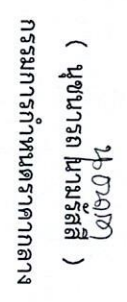 ( นุชนารถ นามรัสสี )
กรรมการกำหนดราคากลาง